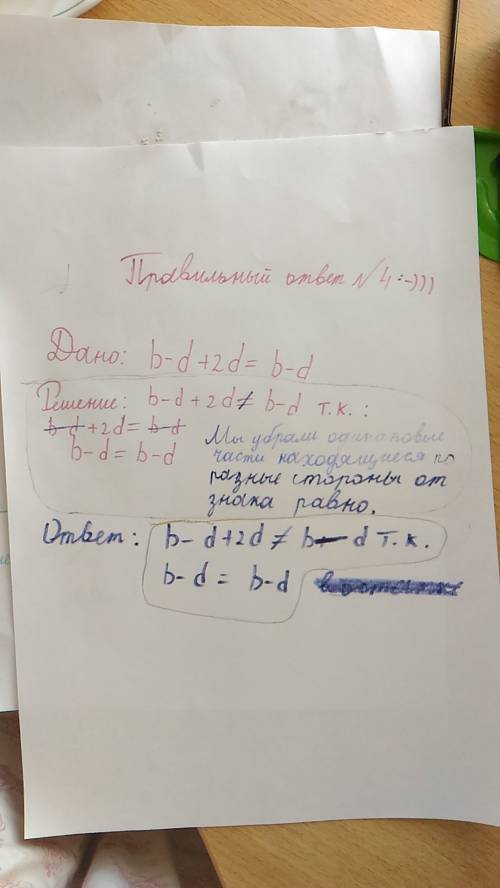 Правильный ответ №4:-)))
Дано: b-d+2d= b-d
Решение: b-d+2d≠ b-d т.к.:
b-d+2d= b-d
b-d = b-d
Мы убрали одинаковые
части находящиеся по
разные стороны от
знака равно.
Ответ: b-d+2d ≠ b-d т.к.
b-d = b-d